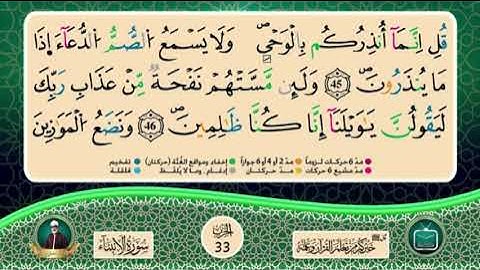 قُلۡ إِنَّمَآ أُنذِرُكُم بِٱلۡوَحۡيِۚ وَلَا يَسۡمَعُ ٱلصُّمُّ ٱلدُّعَآءَ إِذَا
مَا يُنذَرُونَ 45 وَلَئِن مَّسَّتۡهُمۡ نَفۡحَةٞ مِّنۡ عَذَابِ رَبِّكَ
لَيَقُولُنَّ يَٰوَيۡلَنَآ إِنَّا كُنَّا ظَٰلِمِينَ 46 وَنَضَعُ ٱلۡمَوَٰزِينَ
مدّ 6 حركات لزوماً مدّ 2 أو 4 أو 6 جوازاً إخفاء ومواقع الغُنَّة (حركتان) تفخيم
مدّ مشبع 6 حركات مدّ حركتان إدغام، وما لا يُلفَظ قلقلة
سُورَةُ الأَنبِيَاء
الحزب
33
خيركم من تعلم القرآن وعلمه